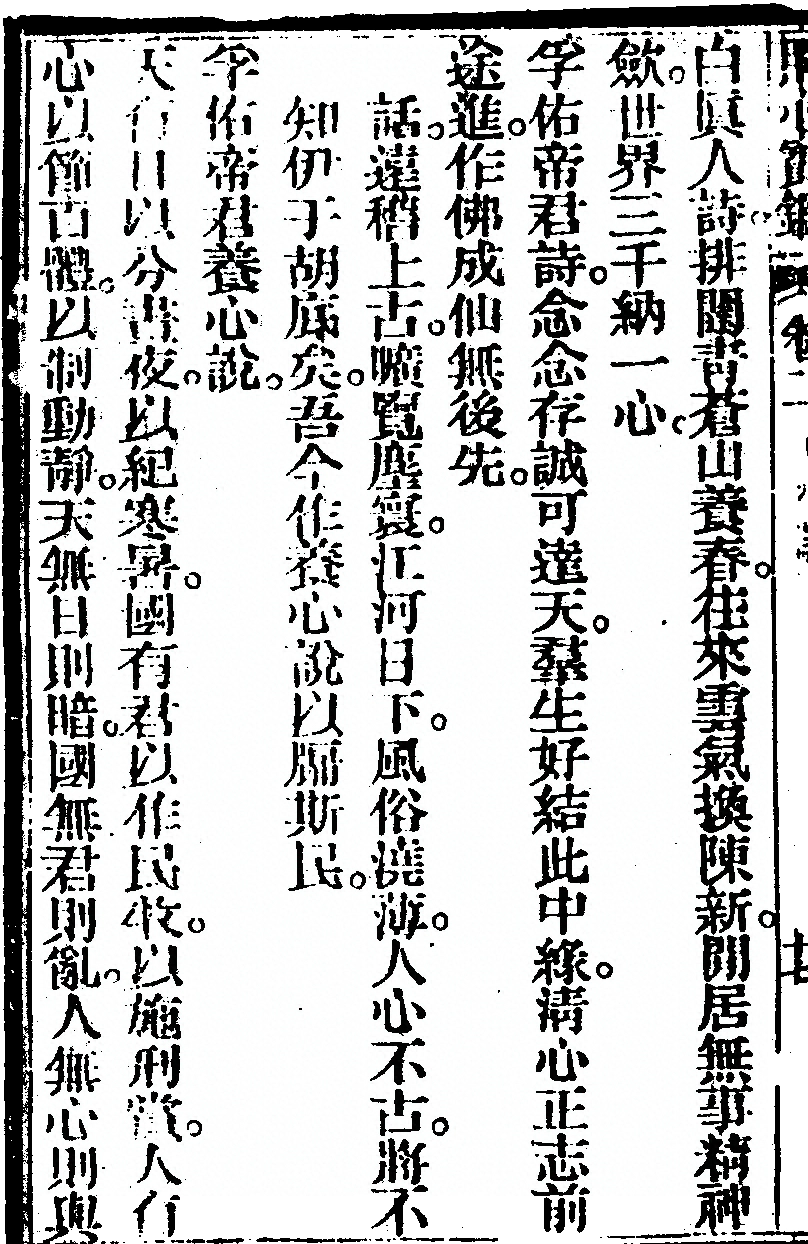 白眞人詩排闥靑蒼山養春。往來雲氣換陳新。閒居無事精神
斂。世界三千納一心。
孚佑帝君詩。念念存誠可達天。羣生好結此中緣。淸心正志前
途進。作佛成仙無後先。
話。遠稽上古。曠覽塵寰。江河日下。風俗澆薄。人心不古。將不
知伊于胡底矣。吾今作養心說以牖斯民。
孚佑帝君養心說。
天有日以分晝夜。以紀寒暑。國有君以作民牧。以施刑賞。人有
心以節百體。以制動靜。天無日則暗。國無君則亂。人無心則與